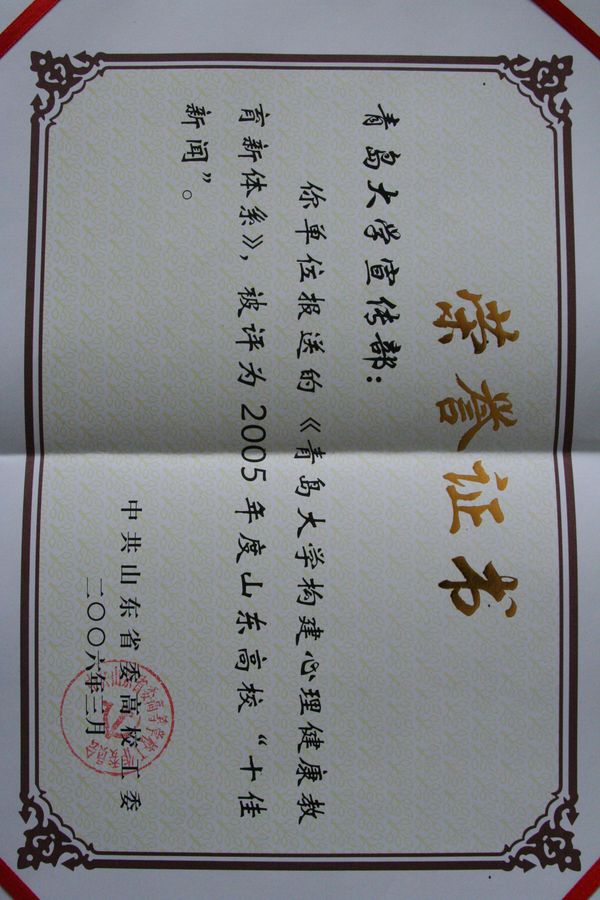 荣誉证书
青岛大学宣传部：
你单位报送的《青岛大学构建心理健康教
育新体系》，被评为2005年度山东高校“十佳
新闻”。
中共山东省委高校工委
二〇〇六年三月